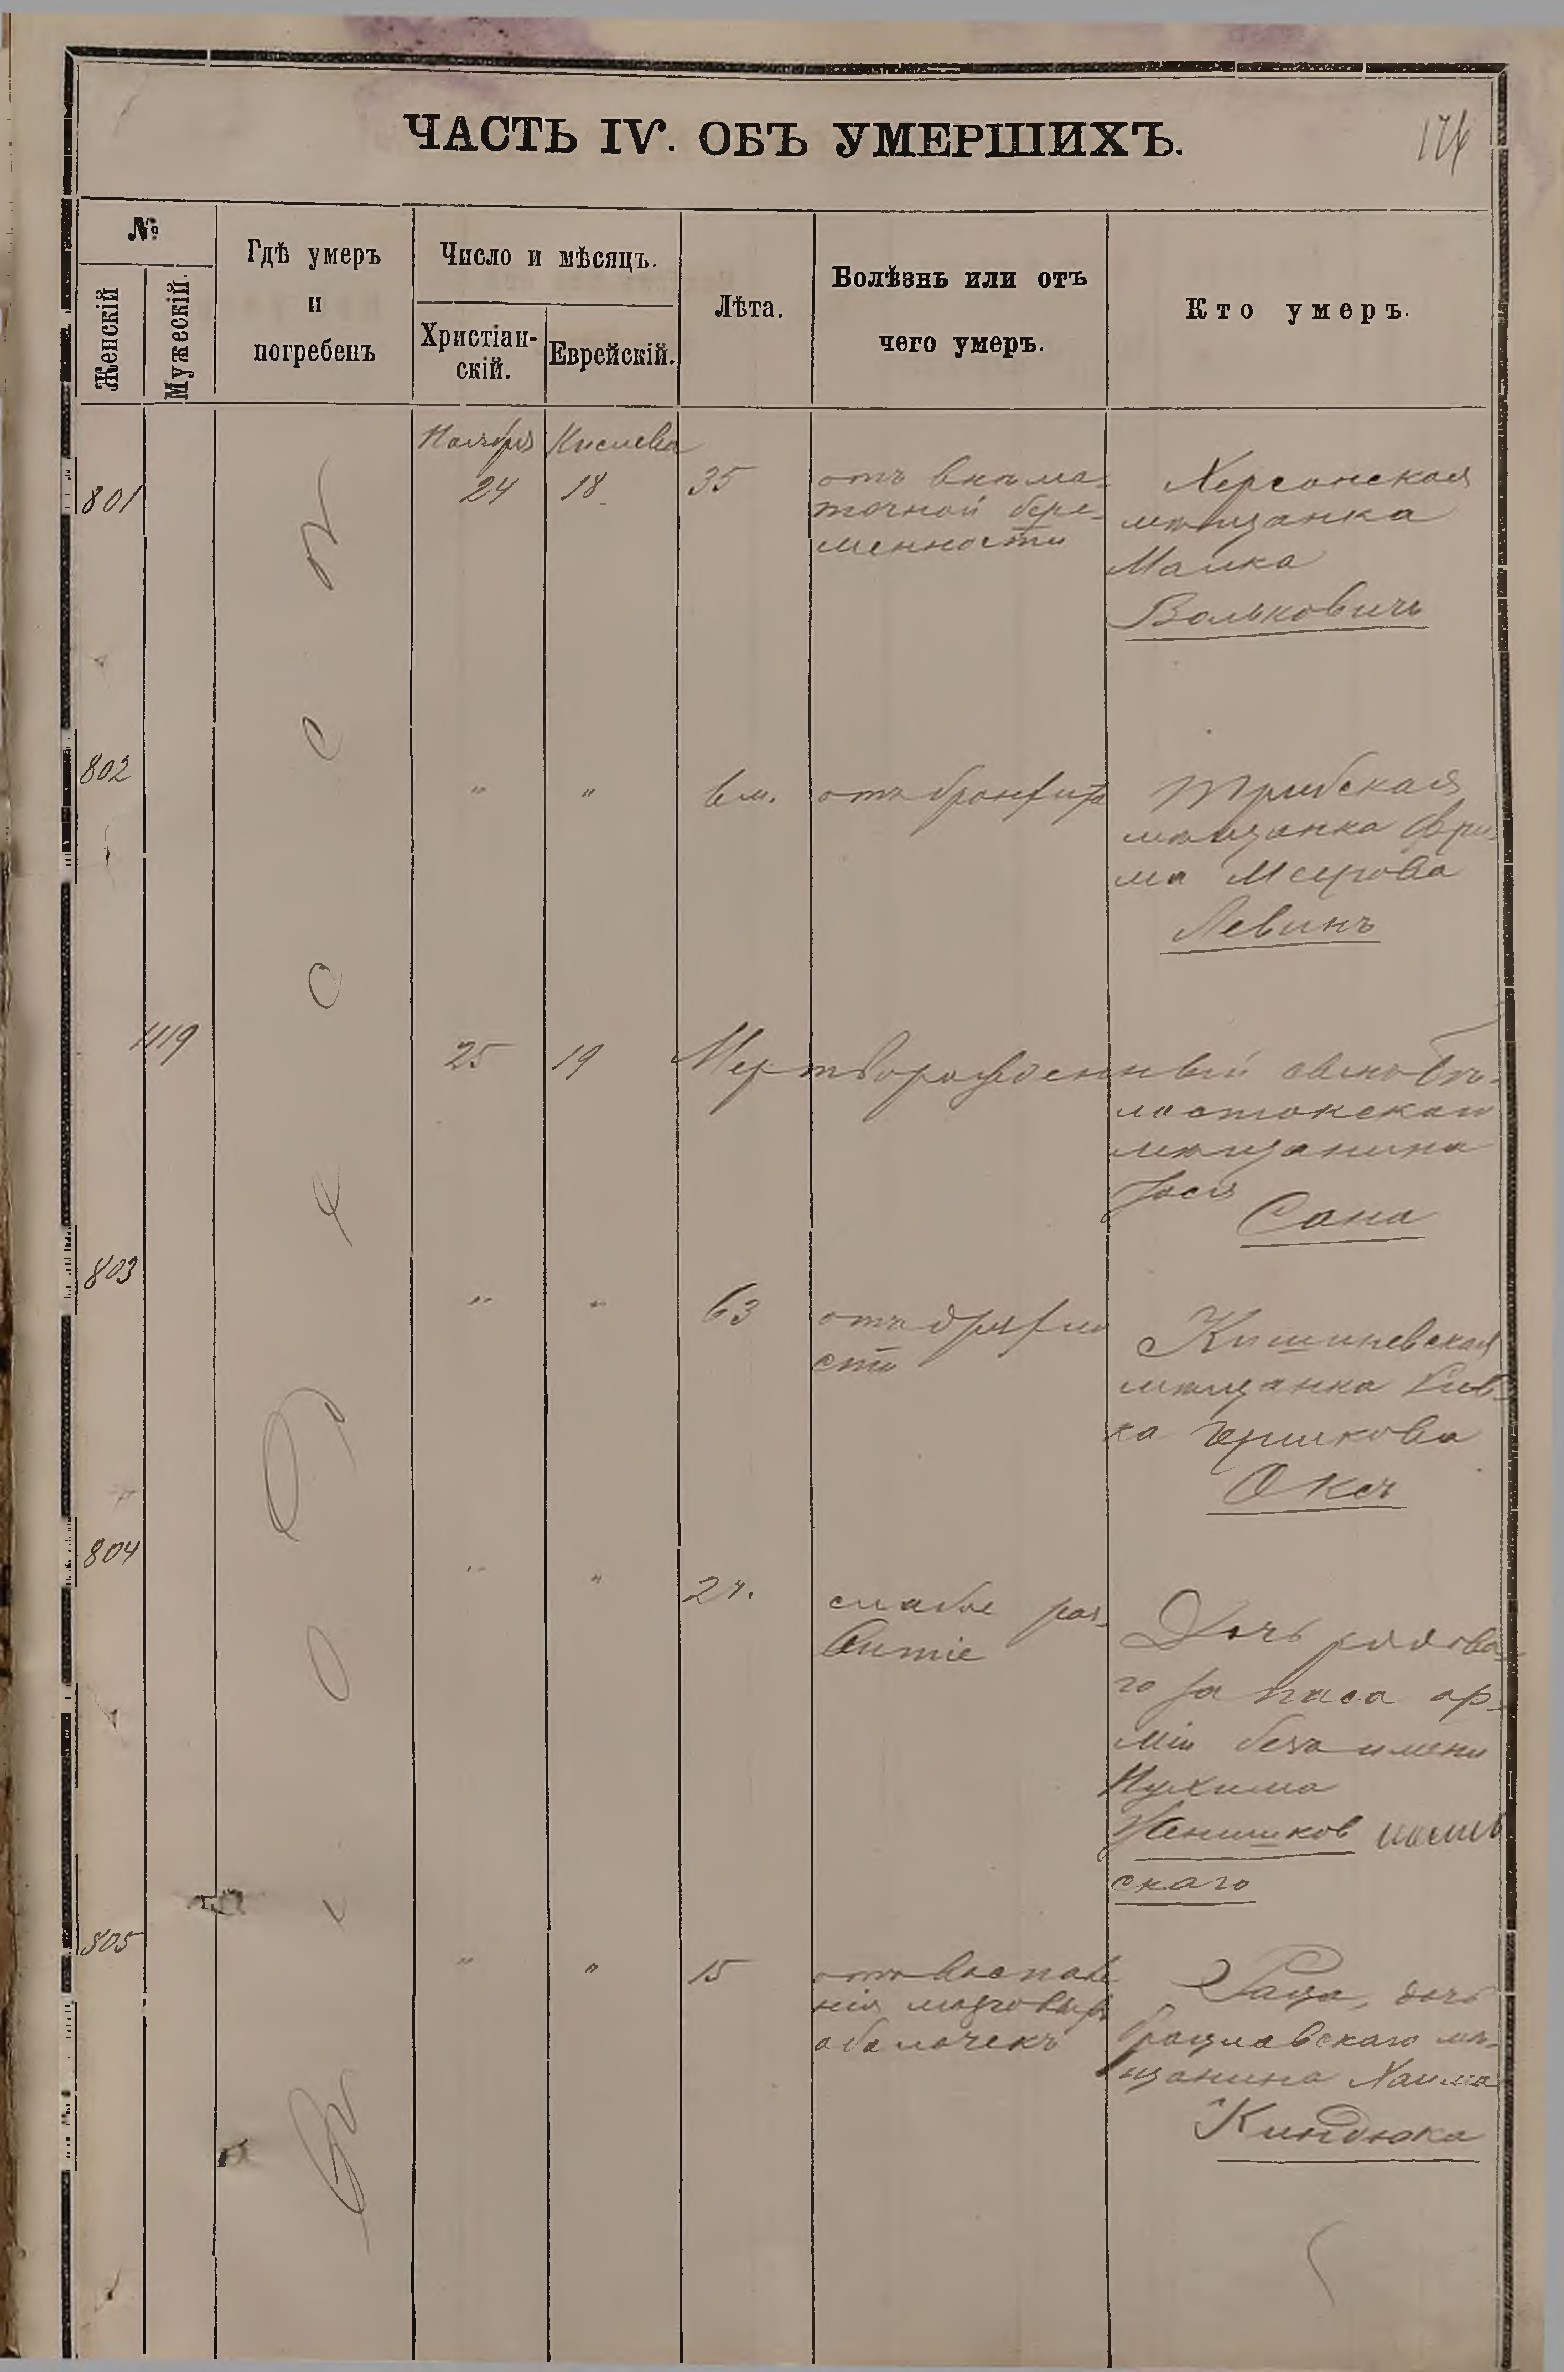 ЧАСТЬ IV. ОБЪ УМЕРШИХЪ.
174
№
Женскій
Мужескій.
Гдѣ умеръ
и
погребенъ
Число и мѣсяцъ.
Христіан-
скій.
Еврейскій.
Лѣта.
Болѣзнь или отъ
чего умеръ.
Кто умеръ.
Ноября Кислева
801 24 18 35
отъ внѣма-
точной бере-
менности
Херсонская
мѣщанка
Малка
Вольковичъ
802 " " 6 м. отъ бронхита
мѣщанка Фру-
ма Меерова
Левинъ
1119 25 19 Мертворожденный сынъ Бѣ-
лостокскаго
мѣщанина
Іося
Сона
803 " " 63
отъ дряхло
сти
Кишиневская
мѣщанка Рив-
ка Гершкова
Оксъ
804 " " 2 ч.
слабое раз-
витіе
Дочь рядова-
го запаса ар-
міи безъ имени
Нухима
скаго
805 " " 15
отъ воспале
нія мозговыхъ
оболочекъ
дочь
брацлавскаго мѣ-
щанина Хаима
Киндюка
въ г. Одессѣ